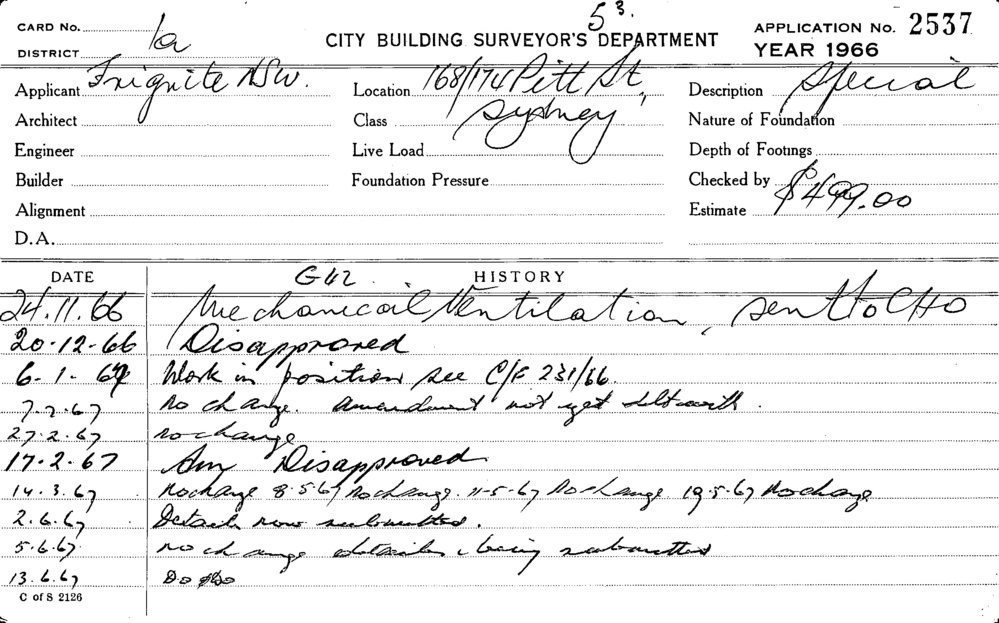 53.
CARD No. CITY BUILDING SURVEYOR'S DEPARTMENT APPLICATION No. 2537
DISTRICT 1a YEAR 1966
Applicant Frignite NSW. Location 168/174 Pitt St, Description Special
Architect Class Sydney Nature of Foundation
Engineer Live Load Depth of Footings
Builder Foundation Pressure Checked by
Alignment Estimate $499.00
D.A.
DATE G42 HISTORY
24.11.66 Mechanical Ventilation, sent to CHO
20-12-66 Disapproved
6-1-67 Work in position see C/F 231/66.
7.2.67 No change. Amendment not yet dealt with.
27.2.67 no change
17-2-67 Am Disapproved
14.3.67 No change 8.5.67 No change. 11-5-67 No change 19.5.67 No change
2.6.67 Details now submitted.
5.6.67 no change details being submitted
13.6.67 Do Do
C of S 2126